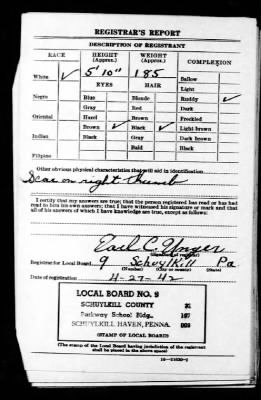 REGISTRAR'S REPORT
DESCRIPTION OF REGISTRANT
RACE
HEIGHT (Approx.)
WEIGHT (Approx.)
COMPLEXION
White ✓
5' 10"
185
Sallow
EYES
HAIR
Light
Negro
Blue
Blonde
Ruddy ✓
Gray
Red
Dark
Oriental
Hazel
Brown
Freckled
Brown ✓
Black ✓
Light brown
Indian
Black
Gray
Dark brown
Bald
Black
Filipino
Other obvious physical characteristics that will aid in identification
Scar on right thumb
I certify that my answers are true; that the person registered has read or has had
read to him his own answers; that I have witnessed his signature or mark and that
all of his answers of which I have knowledge are true, except as follows:
Earl C. Unger
(Signature of registrar)
Registrar for Local Board 9 Schuylkill Pa
(Number) (City or county) (State)
Date of registration 4-27-42
LOCAL BOARD NO. 9
SCHUYLKILL COUNTY 31
Parkway School Bldg., 107
SCHUYLKILL HAVEN, PENNA. 009
(STAMP OF LOCAL BOARD)
(The stamp of the Local Board having jurisdiction of the registrant
shall be placed in the above space.)